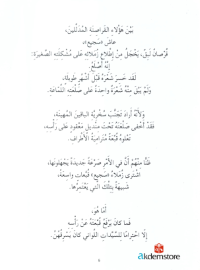 بَيْنَ هَؤُلَاءِ القَرَاصِنَةِ المُدَلَّلِينَ،
عَاشَ «صَحِيح»،
قُرْصَانٌ لَبِقٌ، يَخْجَلُ مِنْ إِطْلَاعِ زُمَلَائِهِ عَلَى مُشْكِلَتِهِ الصَّغِيرَةِ:
إِنَّهُ أَصْلَعُ.
لَقَدْ خَسِرَ شَعْرَهُ قَبْلَ أَشْهُرٍ طَوِيلَةٍ،
وَلَمْ يَبْقَ مِنْهُ شَعْرَةٌ وَاحِدَةٌ عَلَى صَلْعَتِهِ اللَّمَّاعَةِ.
وَلِأَنَّهُ أَرَادَ تَجَنُّبَ سُخْرِيَةِ البَاقِينَ المُهِينَةِ،
فَقَدْ أَخْفَى صَلْعَتَهُ تَحْتَ مِنْدِيلٍ مَعْقُودٍ عَلَى رَأْسِهِ،
تَعْلُوهُ قُبَّعَةٌ مُتَرَامِيَةُ الأَطْرَافِ.
ظَنًّا مِنْهُمْ أَنَّ فِي الأَمْرِ صَرْعَةً جَدِيدَةً يَجْهَلُونَهَا،
اشْتَرَى زُمَلَاءُ قُبَّعَاتٍ وَاسِعَةً،
شَبِيهَةً بِتِلْكَ الَّتِي يَعْتَمِرُهَا.
أَمَّا هُوَ،
فَمَا كَانَ يَرْفَعُ قُبَّعَتَهُ عَنْ رَأْسِهِ
إِلَّا احْتِرَامًا لِلسَّيِّدَاتِ اللَّوَاتِي كَانَ يَسْرِقُهُنَّ.
akdemstore